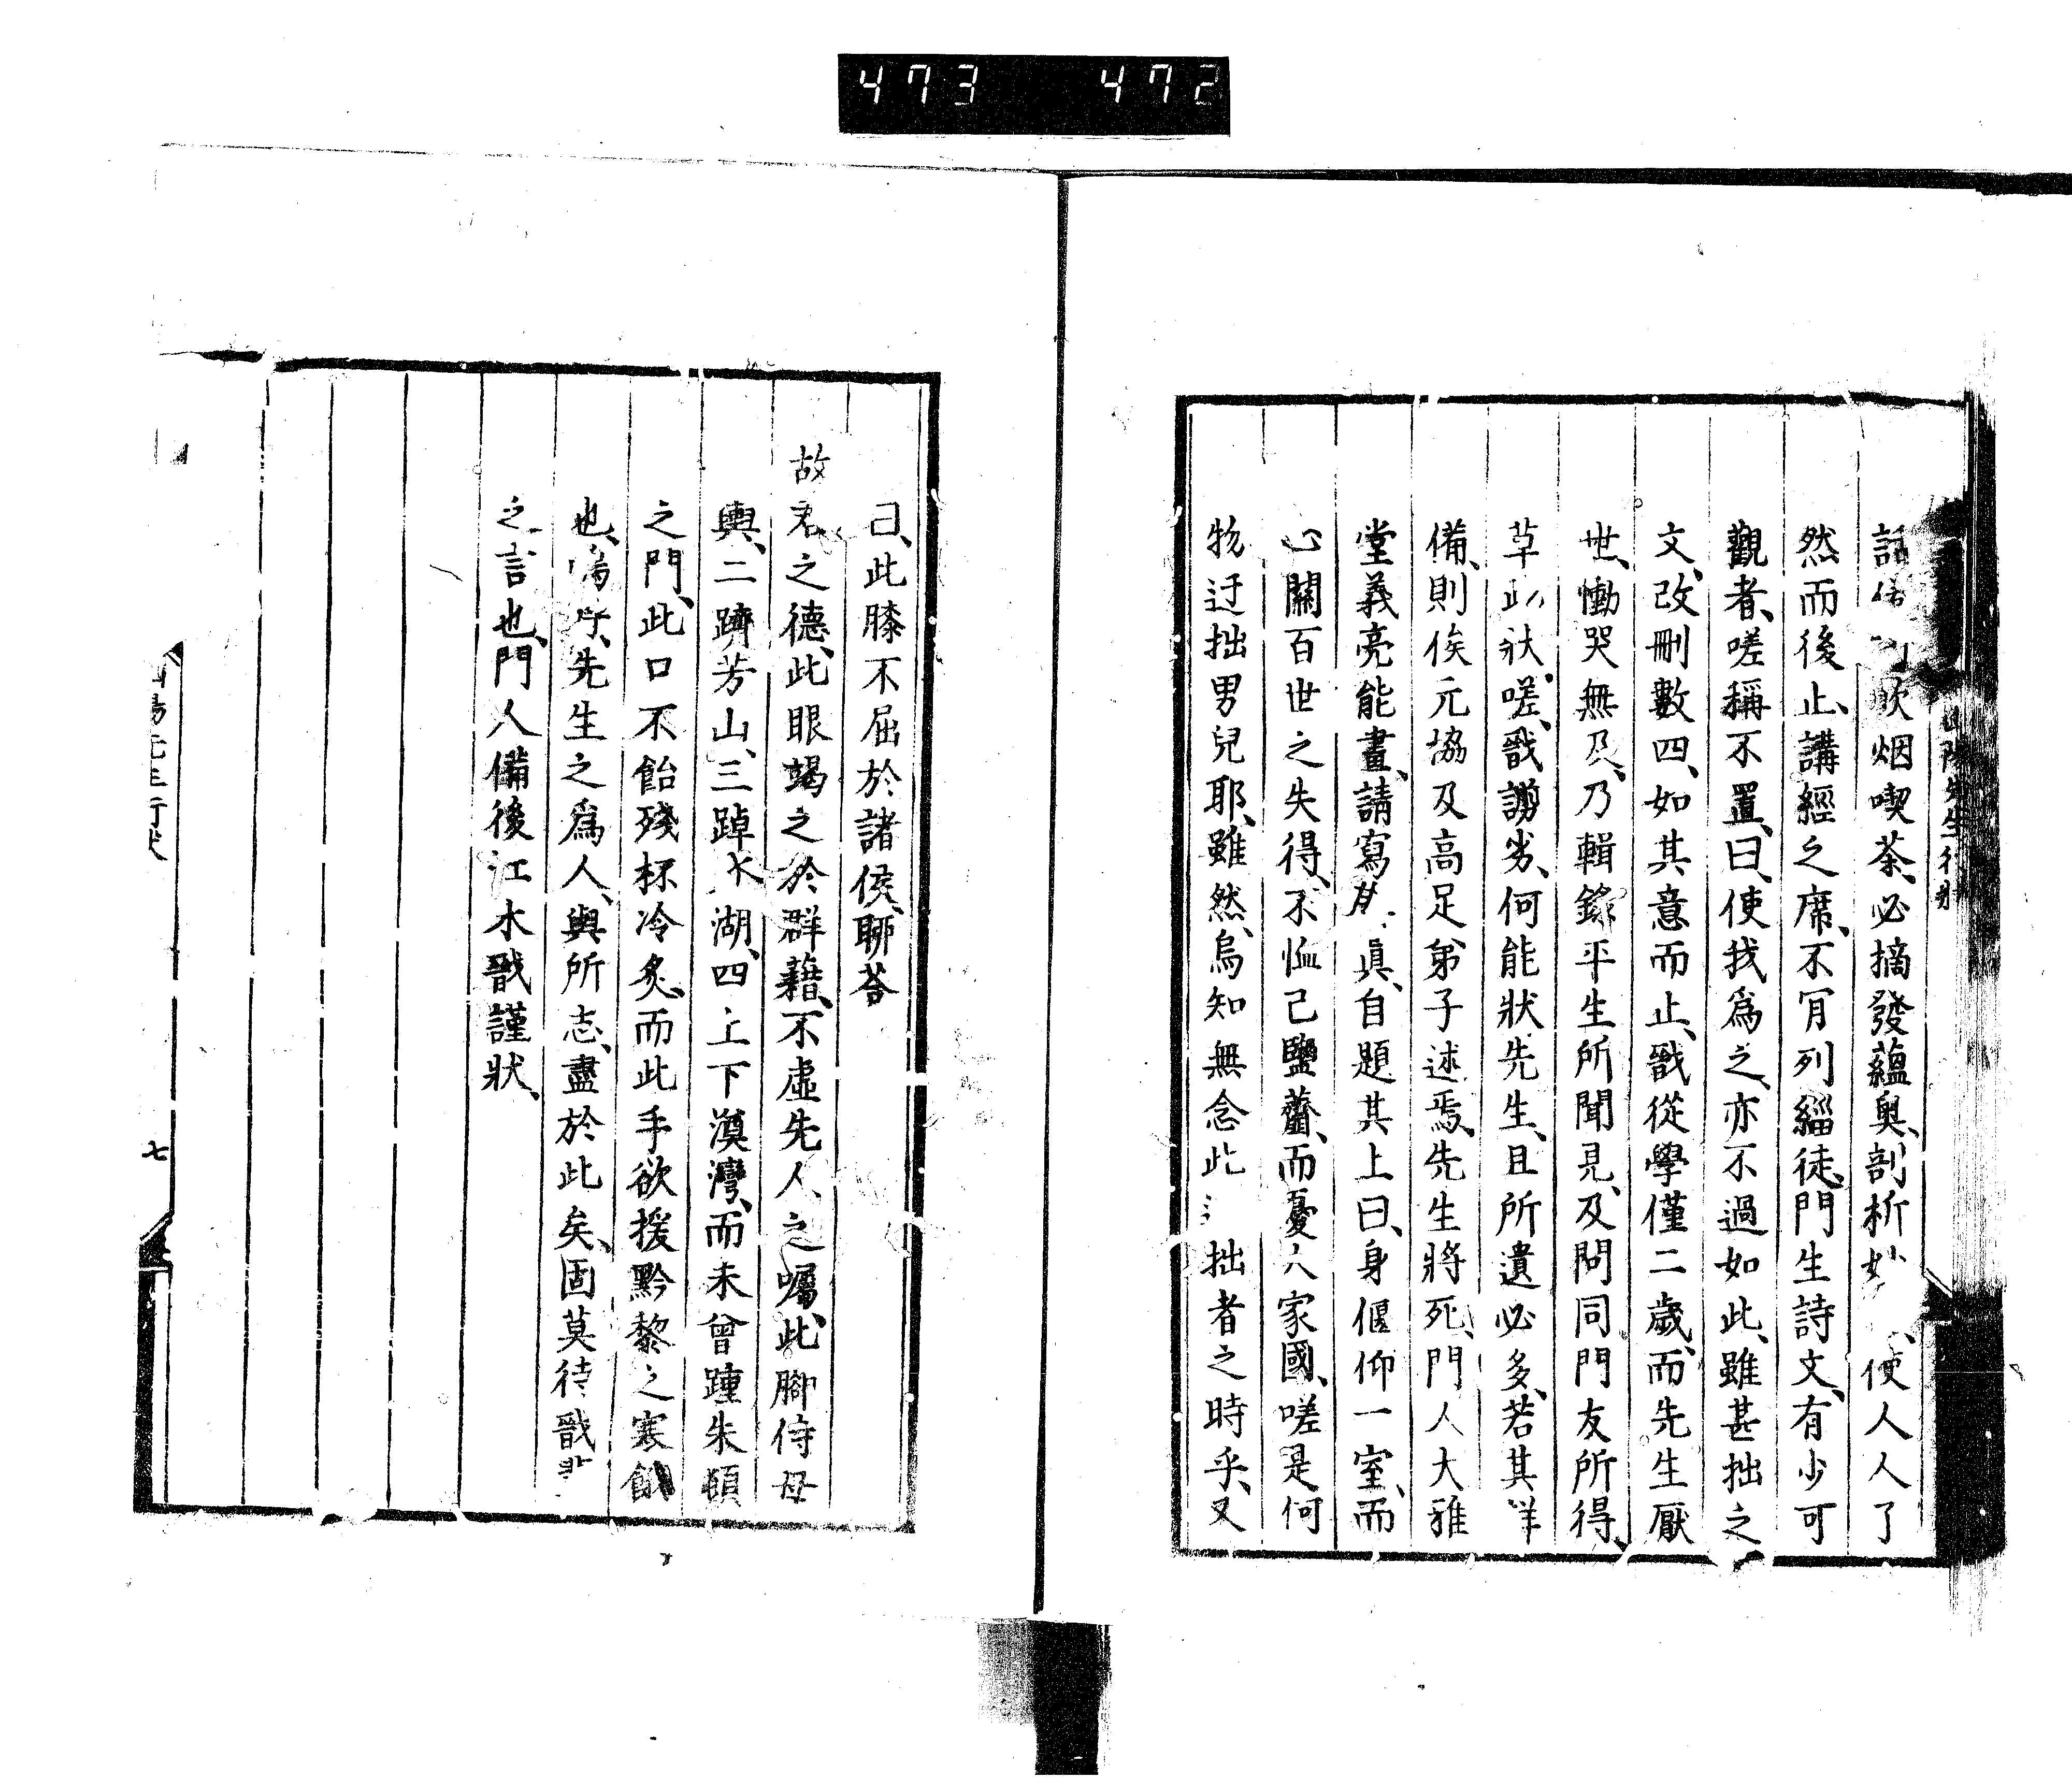 473 472
山陽先生行狀
話 吹烟喫茶、必摘發蘊奧、剖析妙 、使人人了
然而後止、講經之席、不肎列緇徒、門生詩文、有少可
觀者、嗟稱不置、曰、使我爲之、亦不過如此、雖甚拙之
文、改刪數四、如其意而止、戩從學僅二歲、而先生厭
世、慟哭無及、乃輯錄平生所聞見、及問同門友所得、
草此狀、嗟、戩謭劣、何能狀先生、且所遺必多、若其詳
備、則俟元協及高足弟子述焉、先生將死、門人大雅
堂義亮能畫、請寫其眞、自題其上曰、身偃仰一室、而
心關百世之失得、不恤己鹽虀、而憂人家國、嗟是何
物迂拙男兒耶、雖然、烏知無念此 拙者之時乎、又
曰、此膝不屈於諸侯、聊荅
故君之德、此眼竭之於群藉、不虛先人之囑、此腳侍母
輿、二躋芳山、三踔木湖、四上下澳灣、而未曾踵朱頓
之門、此口不飴殘杯冷炙、而此手欲援黔黎之寒餓
也、嗚呼、先生之爲人、與所志、盡於此矣、固莫待戩
之言也、門人備後江木戩謹狀、
山陽先生行狀
七